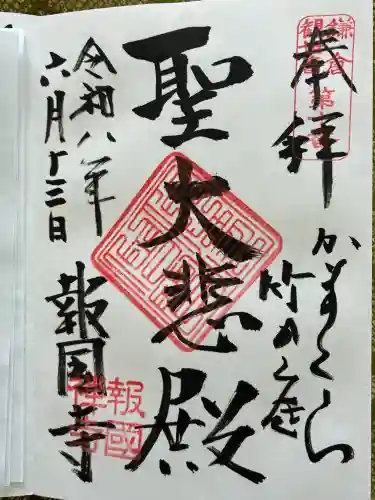 奉拝
鎌倉
観音
第十番
かまくら
竹の之庭
聖大悲殿
令和八年
六月十三日
報国寺
報國
禅寺